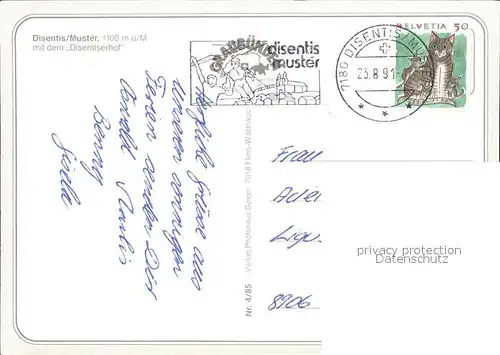 Disentis/Mustér, 1100 m ü/M
mit dem „Disentiserhof"
GRAUBÜNDEN
disentis
mustér
7180 DISENTIS/MUSTÉR
23.8.91
HELVETIA 50
Herzliche Grüsse aus
unseren sonnigen
Ferien senden Dir
Arnold
Benny
Gisela
Nr. 4/85
Verlag Photohaus Geiger, 7018 Flims-Waldhaus
Frau
8906
privacy protection
Datenschutz